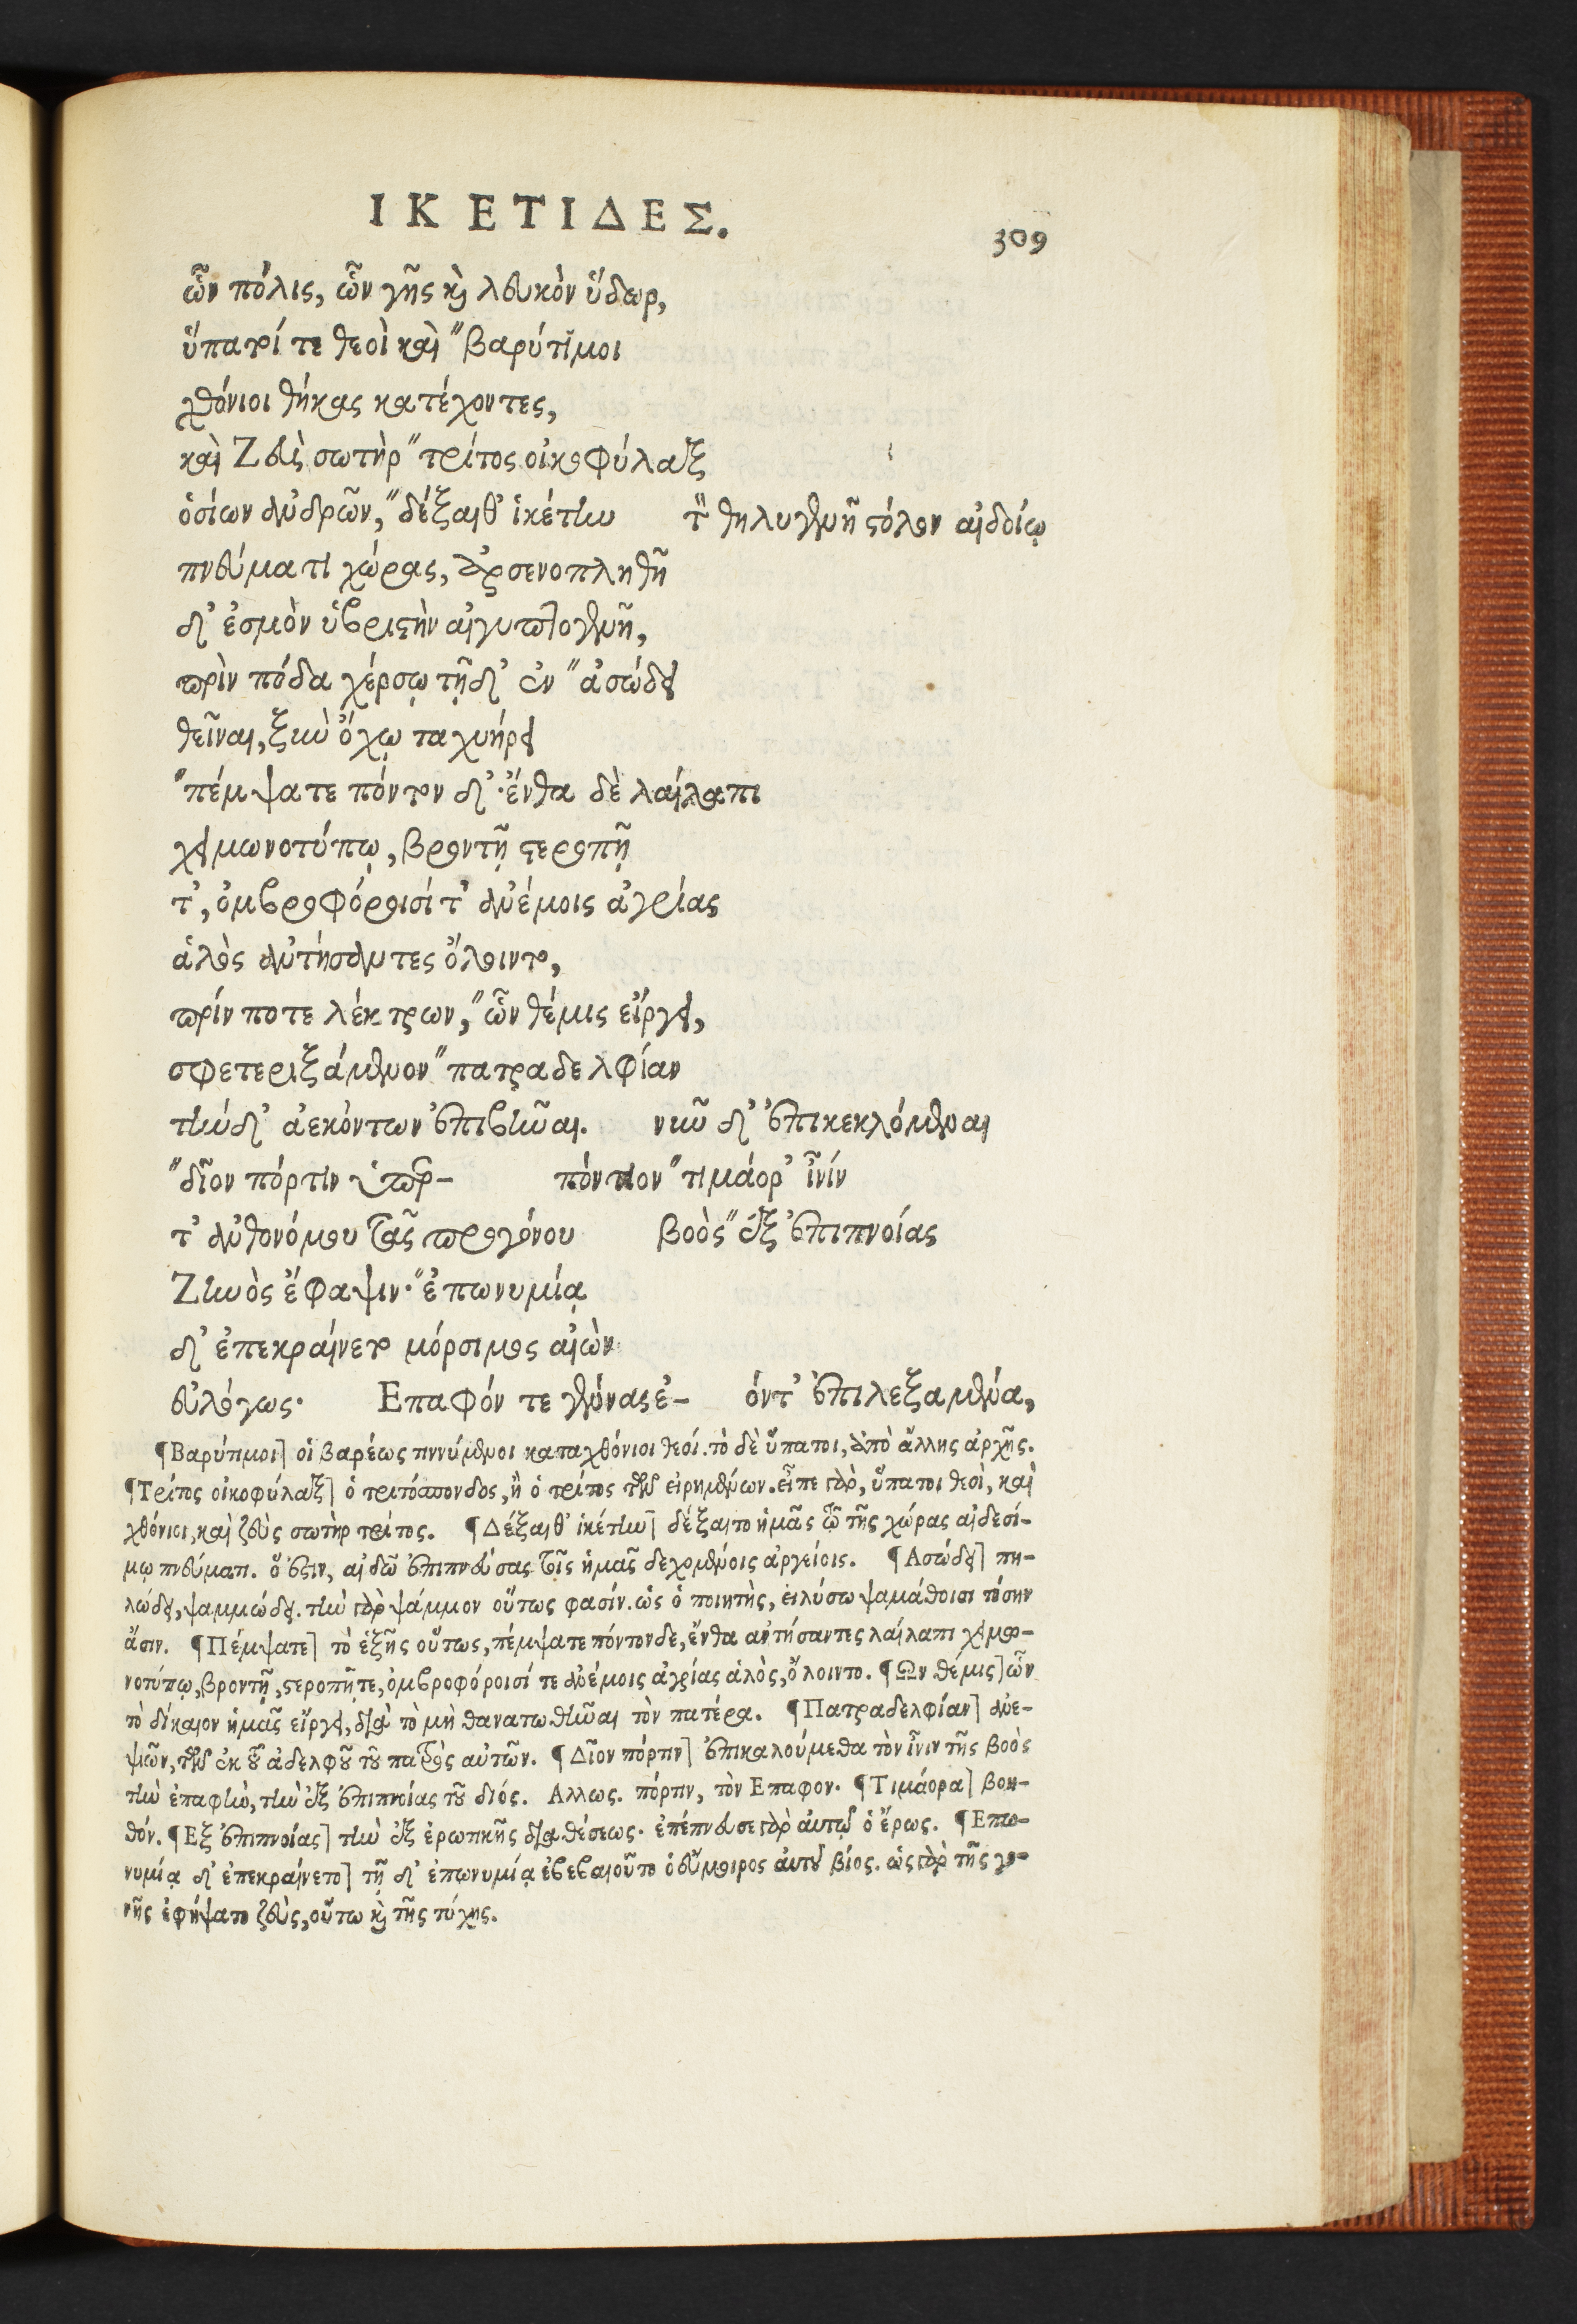 ΙΚΕΤΙΔΕΣ. 309
ὧν πόλις, ὧν γῆς καὶ λευκὸν ὕδωρ,
ὕπατοί τε θεοὶ καὶ ″βαρύτιμοι
χθόνιοι θήκας κατέχοντες,
καὶ Ζεὺς σωτὴρ ″τρίτος οἰκοφύλαξ
ὁσίων ἀνδρῶν, ″δέξαιθ' ἱκέτην τὸν θηλυγενῆ στόλον αἰδοίῳ
πνεύματι χώρας, ἀρσενοπληθῆ
δ' ἑσμὸν ὑβριστὴν αἰγυπτογενῆ,
πρὶν πόδα χέρσῳ τῇδ' ἐν ″ἀσώδει
θεῖναι, ξὺν ὄχῳ ταχυήρει
″πέμψατε πόντον δ'· ἔνθα δὲ λαίλαπι
χειμωνοτύπῳ, βροντῇ στεροπῇ
τ', ὀμβροφόροισί τ' ἀνέμοις ἀγρίας
ἁλὸς ἀντήσαντες ὄλοιντο,
πρίν ποτε λέκτρων, ″ὧν θέμις εἴργει,
σφετεριξάμενον ″πατραδελφίαν
τήνδ' ἀεκόντων ἐπιβῆναι. νῦν δ' ἐπικεκλόμεναι
″δῖον πόρτιν ὑπερ- πόντιον ″τιμάορ' ἶνίν
τ' ἀνθονόμου τᾶς προγόνου βοὸς ″ἐξ ἐπιπνοίας
Ζηνὸς ἔφαψιν· ″ἐπωνυμίᾳ
δ' ἐπεκραίνετο μόρσιμος αἰὼν
εὐλόγως· Επαφόν τε γέννασε- όντ' ἐπιλεξαμένα,
¶Βαρύτιμοι] οἱ βαρέως τιννύμενοι καταχθόνιοι θεοί. τὸ δὲ ὕπατοι, ἀπὸ ἄλλης ἀρχῆς.
¶Τρίτος οἰκοφύλαξ] ὁ τριτόσπονδος, ἢ ὁ τρίτος τῶν εἰρημένων. εἶπε γὰρ, ὕπατοι θεοὶ, καὶ
χθόνιοι, καὶ ζεὺς σωτὴρ τρίτος. ¶Δέξαιθ' ἱκέτην] δέξαιτο ἡμᾶς τῷ τῆς χώρας αἰδεσί-
μῳ πνεύματι. ὅ ἐστιν, αἰδῶ ἐπιπνεύσας τοῖς ἡμᾶς δεχομένοις ἀργείοις. ¶Ασώδει] πη-
λώδει, ψαμμώδει. τὴν γὰρ ψάμμον οὕτως φασίν. ὡς ὁ ποιητὴς, εἰλύσω ψαμάθοισι τόσην
ἄσιν. ¶Πέμψατε] τὸ ἑξῆς οὕτως, πέμψατε πόντονδε, ἔνθα ἀντήσαντες λαίλαπι χειμο-
νοτύπῳ, βροντῇ, στεροπῇ τε, ὀμβροφόροισί τε ἀνέμοις ἀγρίας ἁλὸς, ὄλοιντο. ¶Ων θέμις] ὧν
τὸ δίκαιον ἡμᾶς εἴργει, διὰ τὸ μὴ θανατωθῆναι τὸν πατέρα. ¶Πατραδελφίαν] ἀνε-
ψιῶν, τῶν ἐκ τοῦ ἀδελφοῦ τοῦ πατρὸς αὐτῶν. ¶Δῖον πόρτιν] ἐπικαλούμεθα τὸν ἶνιν τῆς βοὸς
τὴν ἐπαφὴν, τὴν ἐξ ἐπιπνοίας τοῦ διός. Αλλως. πόρτιν, τὸν Επαφον. ¶Τιμάορα] βοη-
θόν. ¶Εξ ἐπιπνοίας] τὴν ἐξ ἐρωτικῆς διαθέσεως· ἐπέπνευσε γὰρ αὐτῷ ὁ ἔρως. ¶Επω-
νυμίᾳ δ' ἐπεκραίνετο] τῇ δ' ἐπωνυμίᾳ ἐβεβαιοῦτο ὁ εὔμοιρος αὐτοῦ βίος. ὡς γὰρ τῆς γο-
νῆς ἐφήψατο ζεὺς, οὕτω καὶ τῆς τύχης.